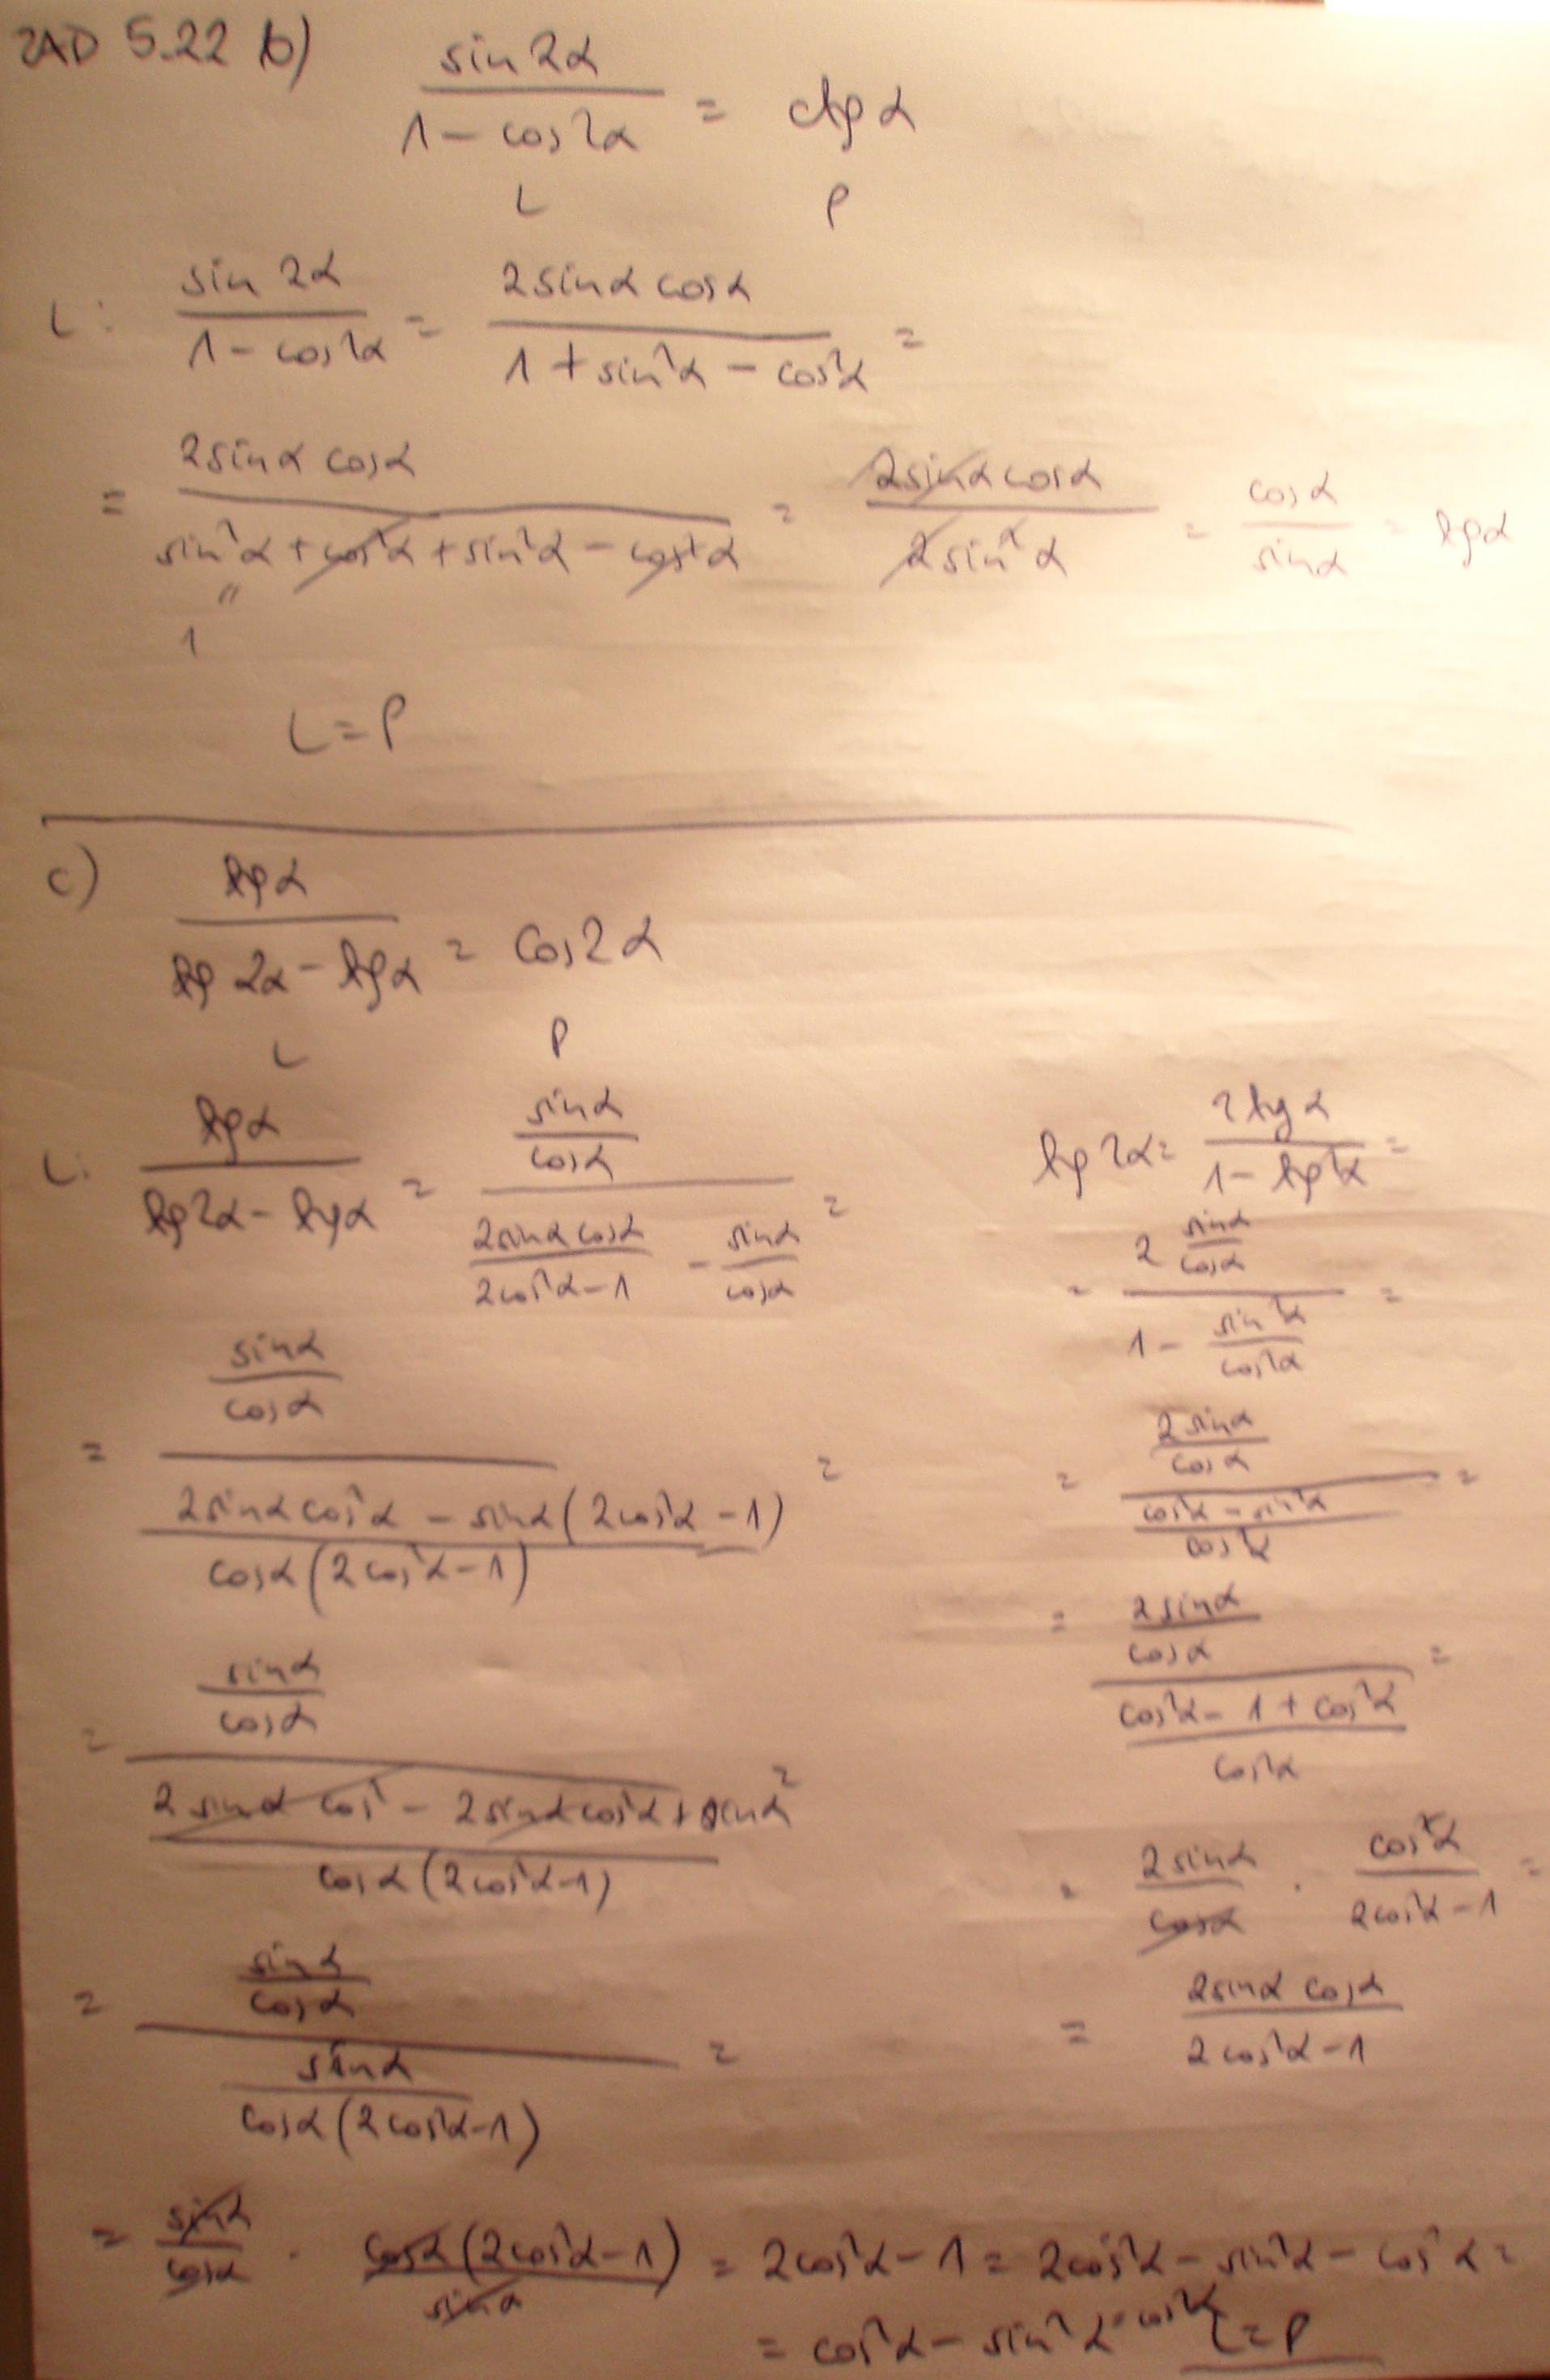 ZAD 5.22 b) sin 2α / (1 - cos2α) = ctg α
L P
L: sin 2α / (1 - cos2α) = 2sinα cosα / (1 + sin²α - cos²α) =
= 2sinα cosα / (sin²α + cos²α + sin²α - cos²α) = 2sinα cosα / (2sin²α) = cosα / sinα = tgα
"
1
L = P
c) tgα / (tg 2α - tgα) = cos2α
L P
L: tgα / (tg2α - tgα) = (sinα / cosα) / (2sinα cosα / (2cos²α - 1) - sinα / cosα) =
= (sinα / cosα) / ((2sinα cos²α - sinα(2cos²α - 1)) / (cosα(2cos²α - 1))) =
= (sinα / cosα) / ((2sinα cos² - 2sinα cos²α + sinα) / (cosα(2cos²α - 1))) =
= (sinα / cosα) / (sinα / (cosα(2cos²α - 1))) =
= sinα / cosα · cosα(2cos²α - 1) / sinα = 2cos²α - 1 = 2cos²α - sin²α - cos²α =
= cos²α - sin²α = cos2α L = P
tg 2α = 2tgα / (1 - tg²α) =
= (2 sinα / cosα) / (1 - sin²α / cos²α) =
= (2sinα / cosα) / ((cos²α - sin²α) / cos²α) =
= (2sinα / cosα) / ((cos²α - 1 + cos²α) / cos²α) =
= 2sinα / cosα · cos²α / (2cos²α - 1) =
= 2sinα cosα / (2cos²α - 1)